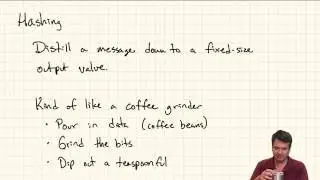 Hashing
Distill a message down to a fixed-size
output value.
Kind of like a coffee grinder
• Pour in data (coffee beans)
• Grind the bits
• Dip out a teaspoonful